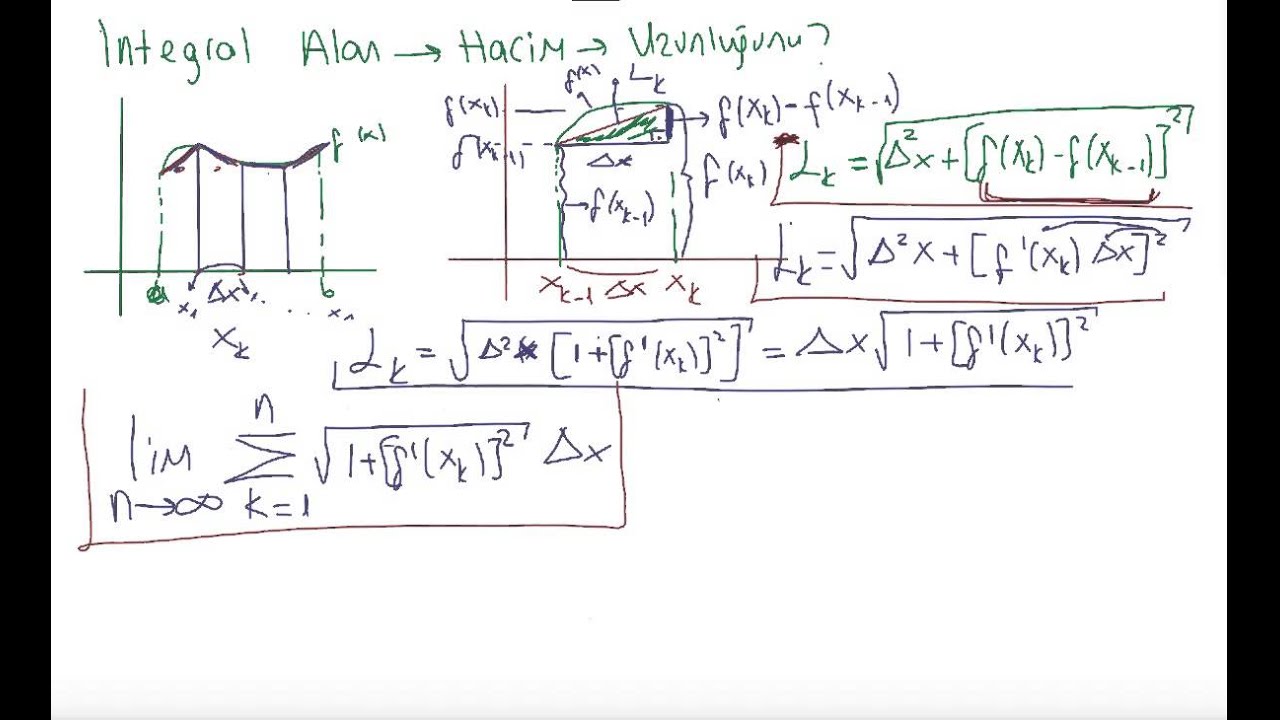 Integral Alan → Hacim → Uzunluğunu?
f(x)
a Δx b
x₁ . . . xₙ
xₖ
f(xₖ) f(x) Lₖ
f(xₖ₋₁) Δx f(xₖ) - f(xₖ₋₁)
f(xₖ₋₁) f(xₖ)
xₖ₋₁ Δx xₖ
Lₖ = √(Δ²x + [f(xₖ) - f(xₖ₋₁)]²)
Lₖ = √(Δ²x + [f'(xₖ) Δx]²)
Lₖ = √(Δ²x [1 + [f'(xₖ)]²]) = Δx √(1 + [f'(xₖ)]²)
lim n→∞ ∑ k=1 n √(1 + [f'(xₖ)]²) Δx